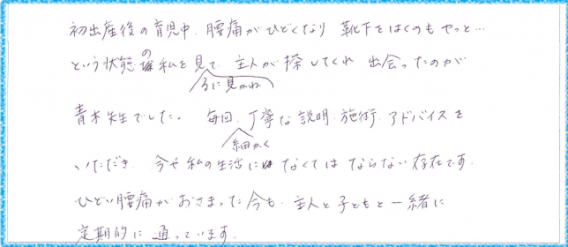 初出産後の育児中、腰痛がひどくなり 靴下をはくのもやっと…
という状態の私を見て、主人が探してくれ 出会ったのが
見かね
青木先生でした。 毎回、丁寧な説明、施術、アドバイスを
細かく
いただき、今や私の生活になくてはならない存在です。
ひどい腰痛がおさまった今も、主人と子どもと一緒に
定期的に通っています。